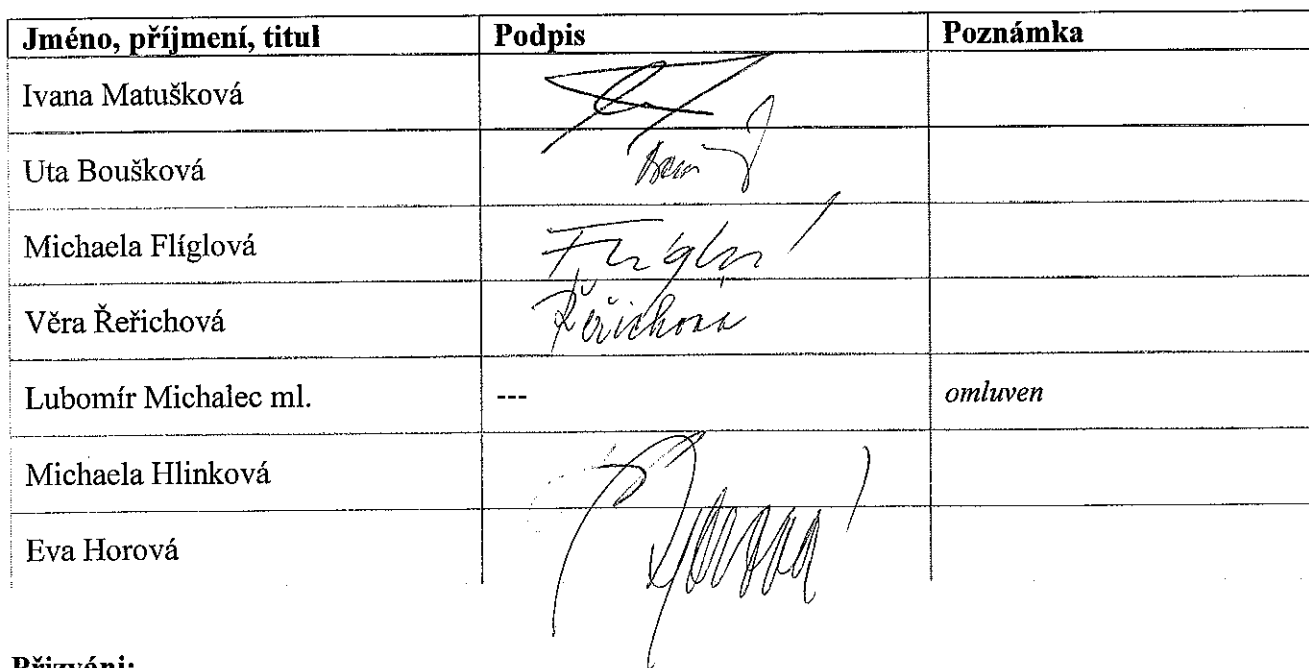 Jméno, příjmení, titul Podpis Poznámka
Ivana Matušková
Uta Boušková
Michaela Flíglová
Věra Řeřichová Řeřichová
Lubomír Michalec ml. --- omluven
Michaela Hlinková
Eva Horová
Přizváni: